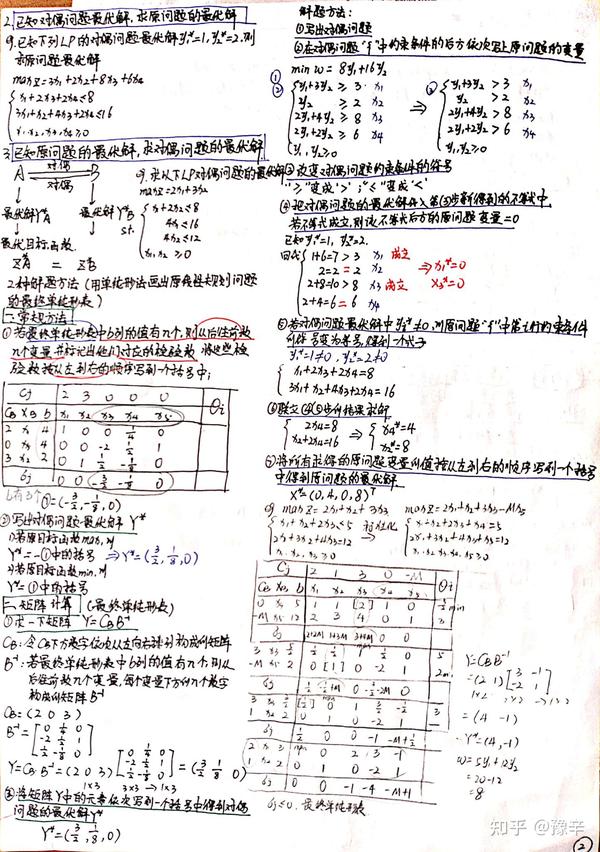 2.已知对偶问题最优解,求原问题的最优解
例.已知下列LP的对偶问题最优解y₁*=1, y₂*=2.则
求原问题最优解
max Z=3x₁+2x₂+8x₃+6x₄
x₁+2x₃+2x₄≤8
3x₁+x₂+4x₃+2x₄≤16
x₁,x₂,x₃,x₄≥0
3.已知原问题的最优解,求对偶问题的最优解
A 对偶 B
对偶
最优解Y*A 最优解Y*B
最优目标函数
Z*A = Z*B
例.求以下LP对偶问题的最优解
max Z=2x₁+3x₂
s.t.
x₁+2x₂≤8
4x₁≤16
4x₂≤12
x₁,x₂≥0
2种解题方法(用单纯形法画出原线性规划问题
的最终单纯形表)
一.常规方法
①若最终单纯形表中b列的值有几个,则从后往前数
几个变量,并标记出他们对应的检验数,将这些检
验数按从左到右的顺序写到一个括号中;
Cj 2 3 0 0 0 θi
CB XB b x₁ x₂ x₃ x₄ x₅
2 x₁ 4 1 0 0 1/4 0
0 x₅ 4 0 0 -2 1/2 1
3 x₂ 2 0 1 1/2 -1/8 0
0 0 -3/2 -1/8 0
b有3个 ①=(-3/2,-1/8,0)
②写出对偶问题最优解 Y*
1)若原目标函数max,则
Y*=-①中的括号 ⇒Y*=(3/2,1/8,0)
2)若原目标函数min,则
Y*=①中的括号
二.矩阵计算(最终单纯形表)
①求一下矩阵 Y=CBB⁻¹
CB:令CB下方数字依次从左向右排列构成的矩阵
B⁻¹:若最终单纯形表中b列的值有几个,则从
后往前数几个变量,每个变量下方的几个数字
构成的矩阵B⁻¹
CB=(2 0 3)
B⁻¹=[0 1/4 0
-2 1/2 1
1/2 -1/8 0]
Y=CB·B⁻¹=(2 0 3)[0 1/4 0
-2 1/2 1
1/2 -1/8 0]=(3/2 1/8 0)
1×3 3×3 →1×3
②将矩阵Y中的元素依次写到一个括号中得到对偶
问题的最优解Y*
Y*=(3/2,1/8,0)
解题方法:
①写出对偶问题
②在对偶问题"{"中约束条件的后方依次写上原问题的变量
min w=8y₁+16y₂
①
②
y₁+3y₂≥3 x₁
y₂≥2 x₂
2y₁+4y₂≥8 x₃
2y₁+2y₂≥6 x₄
y₁,y₂≥0
⇒
y₁+3y₂>3 x₁
y₂>2 x₂
2y₁+4y₂>8 x₃
2y₁+2y₂>6 x₄
y₁,y₂≥0
③改变对偶问题约束条件的符号
"≥"变成">";"≤"变成"<"
④把对偶问题的最优解代入第③步新得到的不等式中,
若不等式成立,则该不等式后方的原问题变量=0
已知y₁*=1, y₂*=2.
回代
1+6=7>3 x₁ 成立
2=2=2 x₂
2+8=10>8 x₃ 成立
2+4=6=6 x₄
⇒x₁*=0
x₃*=0
⑤若对偶问题最优解中yi*≠0,则原问题"{"中第i行约束条件
的符号变为等号,得到一个式子
y₁*=1≠0, y₂*=2≠0
x₁+2x₃+2x₄=8
3x₁+x₂+4x₃+2x₄=16
⑥联立④⑤步的结果求解
2x₄=8
x₂+2x₄=16
⇒
x₄*=4
x₂*=8
⑦将所有求得的原问题变量的值按从左到右的顺序写到一个括号
中得到原问题的最优解
例 max Z=2x₁+x₂+3x₃
x₁+x₂+2x₃≤5
2x₁+3x₂+4x₃=12
x₁,x₂,x₃≥0
标准化
max Z=2x₁+x₂+3x₃-Mx₅
x₁+x₂+2x₃+x₄=5
2x₁+3x₂+4x₃+x₅=12
Cj 2 1 3 0 -M θi
CB XB b x₁ x₂ x₃ x₄ x₅
0 x₄ 5 1 1 [2] 1 0
-M x₅ 12 2 3 4 0 1 3
0 [1] 0 -2 1
1 x₂ 2 0 1 0 -2 1
1 x₂ 2 0 1 0 -2 1
0 0 -1 -4 -M+1
σj≤0.最终单纯形表
Y=CBB⁻¹
=(2 1)[3 -1
-2 1]
=(4 -1)
Y*=(4,-1)
w=5y₁+12y₂
=20-12
=8
知乎 @豫辛
②